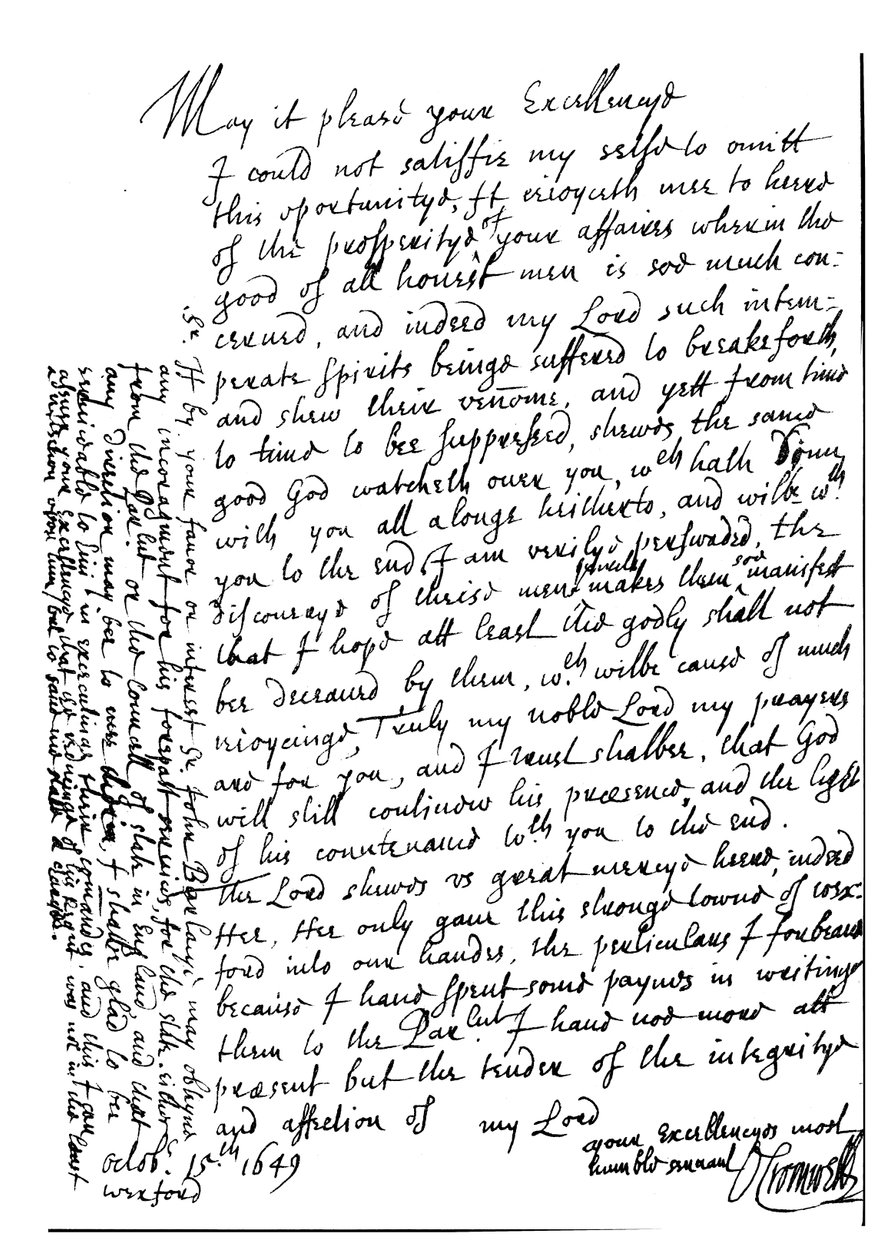 May it please your Excellencye
I could not satisfie my selfe to omitt
this oportunitye, It reioyceth mee to heere
of the prosperitye of your affaires wherein the
good of all honest men is soe much con=
cerned, and indeed my Lord such intem=
perate spirits beinge suffered to breake forth,
and shew their venome, and yett from time
to time to bee suppressed, shewes the same
good God watcheth over you, wch hath binn
with you all alonge heitherto, and wilbe wth
you to the end, I am verilye perswaded, the
discoverye of theise mens makes them soe manifest
that I hope att least the godly shall not
bee deceaued by them, wch wilbe cause of much
reioycinge, Truly my noble Lord my prayers
are for you, and I trust shalbee, that God
will still continew his præsence, and the light
of his countenance wth you to the end.
the Lord shewes vs great mercye heere, indeed
Hee, Hee only gaue this stronge towne of wex=
ford into our handes, the perticulars I forbeare
because I haue spent some paynes in writinge
them to the Parlnt. I haue noe more att
præsent but the tender of the integritye
and affection of my Lord
your Excellencyes most
humble seruant
O Cromwell
Octob. 15th 1649
wexford
Sr.
If by your fauor or interest Sr. John Barlaye may obteyne
any incoragment for his forepast seruices for the state, either
from the Parlnt or the Councell of state in England, and that
any direction may bee to mee therein, I shalbe glad to bee
seruiceable to him in executinge their comandes, and this I can
assure your Excellencye that the revenige of his Regnt was not in the least